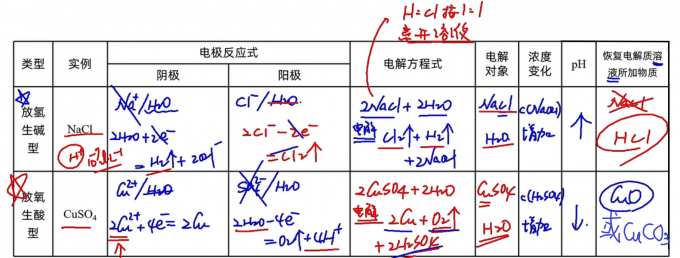 H=Cl 按1=1
离开溶液
类型 实例 电极反应式 电解方程式 电解对象 浓度变化 pH 恢复电解质溶液所加物质
阴极 阳极
放氢生碱型 NaCl
H⁺ 10⁻⁷mol·L⁻¹
Na⁺/H2O
2H2O+2e⁻
=H2↑+2OH⁻
Cl⁻/H2O
2Cl⁻-2e⁻
=Cl2↑
2NaCl+2H2O
电解 Cl2↑+H2↑
+2NaOH
NaCl
H2O
c(NaOH)
增加
↑
NaCl
HCl
放氧生酸型 CuSO₄
Cu²⁺/H2O
2Cu²⁺+4e⁻=2Cu
SO4²⁻/H2O
2H2O-4e⁻
=O2↑+4H⁺
2CuSO4+2H2O
电解 2Cu+O2↑
+2H2SO4
CuSO4
H2O
c(H2SO4)
增加
↓
CuO
或CuCO3